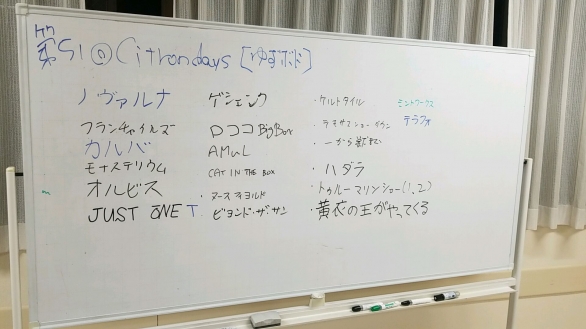 第51回 Citrondays [ゆずボド]
ノヴァルナ
フランチャイルズ
カルバ
モナステリウム
オルビス
JUST ONE T
ゲシェンク
ロココ Big Box
AMUL
CAT IN THE BOX
・ヌースフィヨルド
・ビヨンド・ザ・サン
・ケルトタイル
・ハダラ
・トゥルーマリンショー(1,2)
・黄衣の王がやってくる
ミントワークス
テラフォ